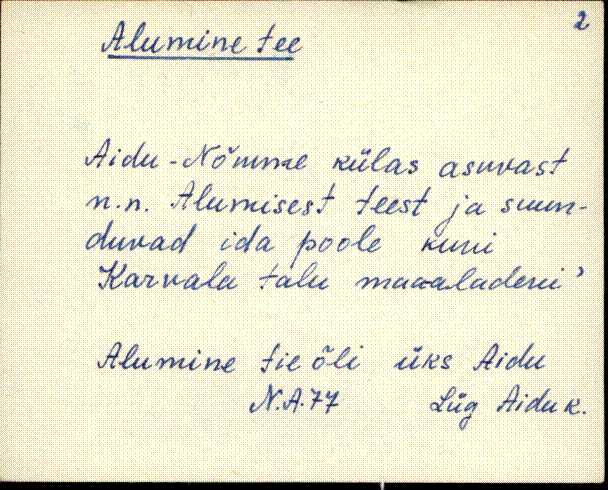 2
Alumine tee
Aidu-Nõmme külas asuvast
n.n. Alumisest teest ja suun-
duvad ida poole kuni
Karvala talu maaaladeni'
Alumine tie õli üks Aidu
N.A.77 Lüg Aidu k.